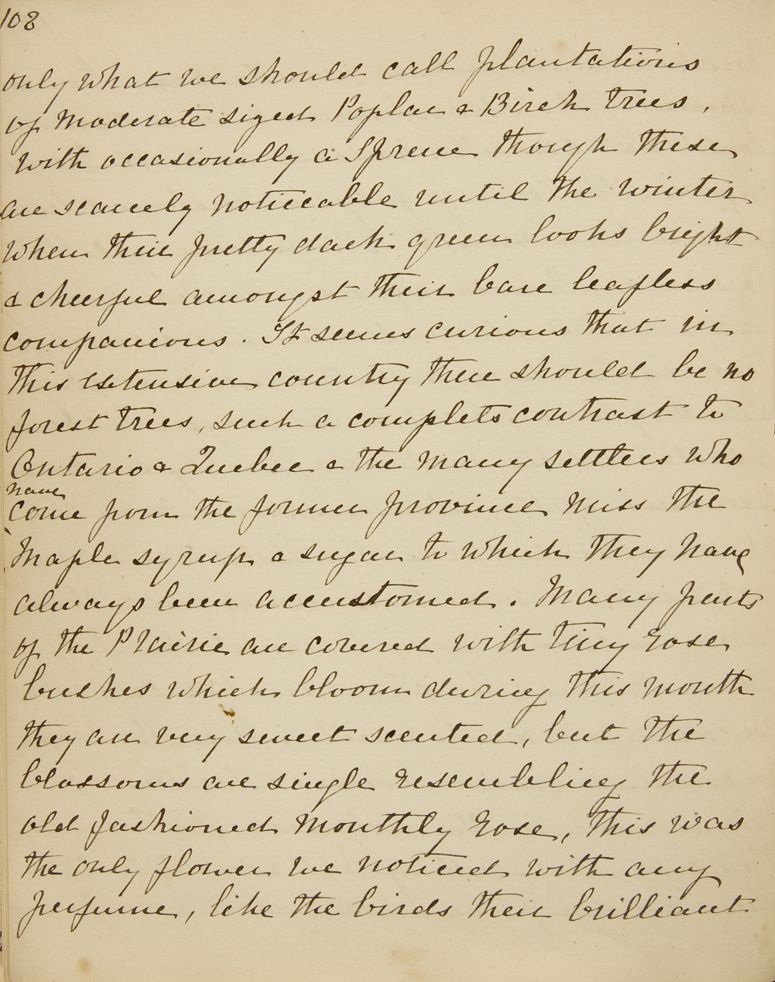 108
only what we should call plantations
of moderate sized Poplar & Birch trees,
with occasionally a Spruce though these
are scarcely noticeable until the winter
when their pretty dark green looks bright
& cheerful amongst their bare leafless
companions. It seems curious that in
this extensive country there should be no
forest trees, such a complete contrast to
Ontario & Quebec & the many settlers who
have
come from the former province miss the
Maple syrup & sugar to which they have
always been accustomed. Many parts
of the Prairie are covered with tiny rose
bushes which bloom during this month
they are very sweet scented, but the
blossoms are single resembling the
old fashioned monthly rose, this was
the only flower we noticed with any
perfume, like the birds their brilliant